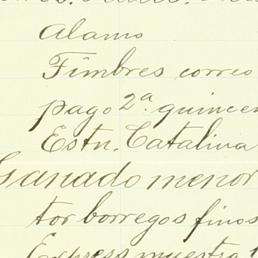 Alamo
Timbres correo
pago 2ª quincen
Estn. Catalina
Ganado menor
tor borregos finos
Express muestra